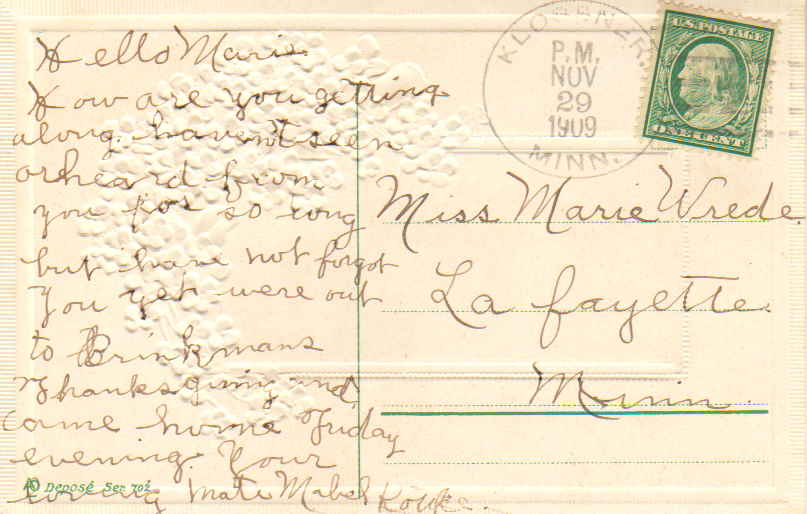 Hello Marie.
How are you getting
along. haven't seen
or heard from
you for so long
but have not forgot
you yet were out
to Brinkmans
Thanksgiving and
came home Friday
evening. Your
loving mate Mabel
Deposé Ser. 702
P.M.
NOV
29
1909
MINN.
U.S. POSTAGE
ONE CENT
Miss Marie Wrede.
La fayette.
Minn.